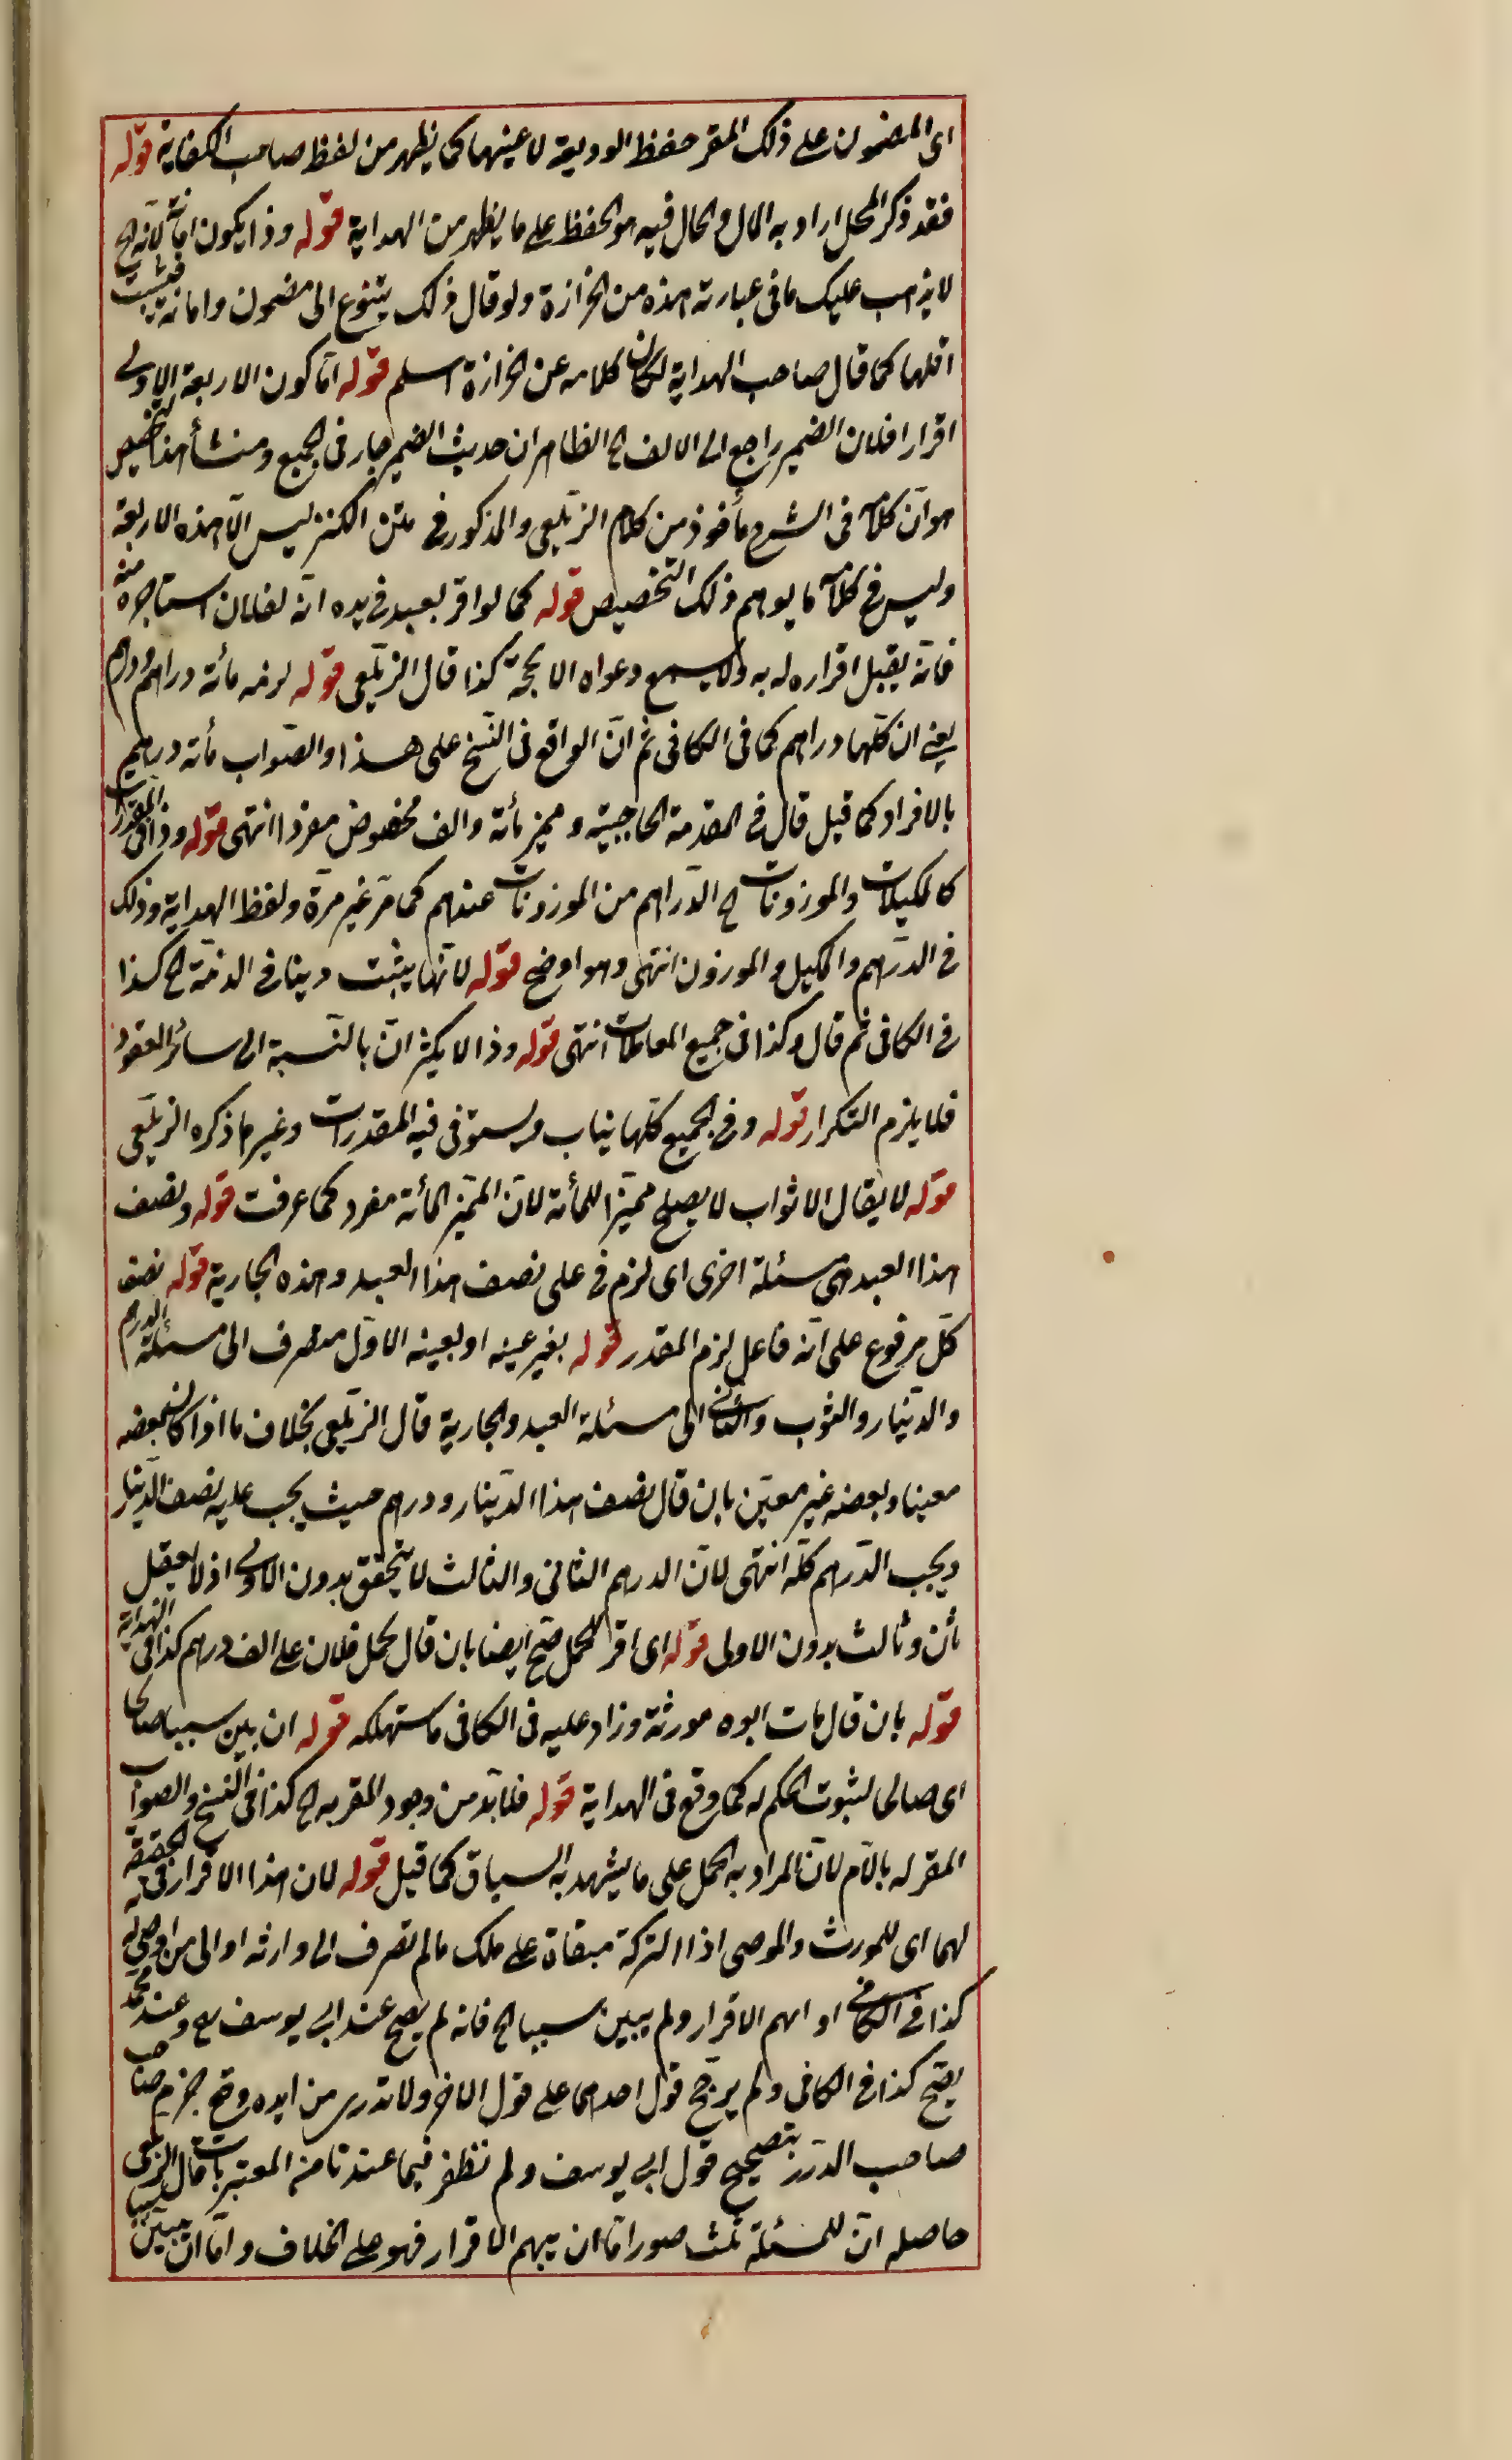 اى المضمون على ذلك المقر حفظ الوديعة لا عينها كما يظهر من لفظ صاحب الكفاية قوله
فقد ذكر المحل اراد به المال والحال فيه هو الحفظ على ما يظهر من الهداية قوله وذا يكون امانة لانه الخ
لا يذهب عليك ما فى عبارته هذه من الحزازة ولو قال ذلك يتنوع الى مضمون وامانة فيثبت
اقلها كما قال صاحب الهداية لكان كلامه عن الحزازة اسلم قوله اما كون الاربعة الاولى
اقرارا فلان الضمير راجع الى الالف الخ الظاهر ان حديث الضمير جار فى الجميع ومنشأ هذا التخصيص
هو ان كلامه فى الشرح مأخوذ من كلام الزيلعى والمذكور فى متن الكنز ليس الا هذه الاربعة
وليس فى كلامه ما يوهم ذلك التخصيص قوله كما لو اقر بعبد فى يده انه لفلان استاجره منه
فانه يقبل اقراره له به ولا يسمع دعواه الا بحجة كذا قال الزيلعى قوله لزمه مائة دراهم ودرهم
يعنى ان كلها دراهم كما فى الكافى ثم ان الواقع فى النسخ على هذا والصواب مأته درهم
بالافراد كما قيل قال فى المقدمة الحاجبية ومميز مأئة والف مخفوض مفرد انتهى قوله وذا فى المقدرات
كالمكيلات والموزونات الخ الدراهم من الموزونات عندهم كما مر غير مرة ولفظ الهداية وذلك
فى الدرهم والمكيل والموزون انتهى وهو اوضح قوله لانها يثبت دينا فى الذمة الخ كذا
فى الكافى ثم قال وكذا فى جميع المعاملات انتهى قوله وذا لا يكثر ان بالنسبة الى سائر العقود
فلا يلزم التكرار قوله وفى الجميع كلها ثياب ويستوى فيه المقدرات وغيرها ذكره الزيلعى
قوله لا يقال الاثواب لا يصلح مميزا للمأئة لان المميز المأئة مفرد كما عرفت قوله ونصف
هذا العبد هى مسئلة اخرى اى لزم فى على نصف هذا العبد وهذه الجارية قوله نصف
كل مرفوع على انه فاعل لزم المقدر قوله بغير عينه او بعينه الاول منصرف الى مسئلة الدرهم
والدينار والثوب والثانى الى مسئلة العبد والجارية قال الزيلعى بخلاف ما اذا كان بعضه
معينا وبعضه غير معين بان قال نصف هذا الدينار ودرهم حيث يجب عليه نصف الدينار
ويجب الدرهم كله انتهى لان الدرهم الثانى والثالث لا يتحقق بدون الاولى اذ لا يعقل
ثان وثالث بدون الاولى قوله اى اقر للحمل صح ايضا بان قال لحمل فلان على الف درهم كذا فى النهاية
قوله بان قال مات ابوه مورثة وزاد عليه فى الكافى فاستهلكه قوله ان بين سببا صالحا
اى صالحا لثبوت الحكم له كما وقع فى الهداية قوله فلا بد من وجود المقر به الخ كذا فى النسخ والصواب
المقر له باللام لان المراد به الحمل على ما يشهد به السياق كما قيل قوله لان هذا الاقرار فى الحقيقة
لهما اى للمورث والموصى اذا التركة مبقاة على ملك مالم تصرف الى وارثه او الى من اوصى له
كذا فى الكافى او ابهم الاقرار ولم يبين سببا الخ فانه لم يصح عند ابى يوسف رح وعند محمد
يصح كذا فى الكافى ولم يرجح قول احدهما على قول الاخر ولا ندرى من ايده وقع جزم صاحب
صاحب الدرر بتصحيح قول ابى يوسف ولم نظفر فيما عندنا من المعتبرات قال الزيلعى
حاصله ان للمسئلة ثلث صور اما ان يبهم الاقرار فهو على الخلاف واما ان يبين سببا